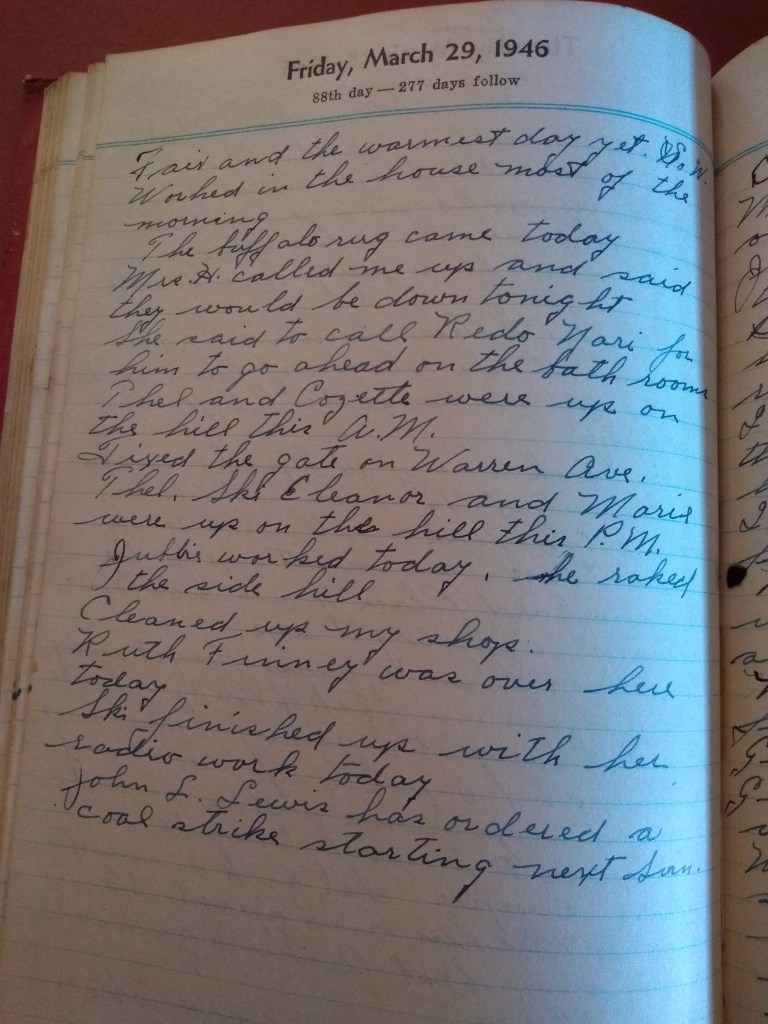 Friday, March 29, 1946
88th day — 277 days follow
Fair and the warmest day yet. So. W.
Worked in the house most of the
morning
The buffalo rug came today
Mrs. H. called me up and said
they would be down tonight
She said to call Redo Nari for
him to go ahead on the bath room
Thel and Cozette were up on
the hill this A.M.
Fixed the gate on Warren Ave.
Thel. Ski Eleanor and Marie
were up on the hill this P.M.
Jubbie worked today. he raked
the side hill
Cleaned up my shop.
Ruth Finney was over here
today
Ski finished up with her
radio work today
John L. Lewis has ordered a
coal strike starting next Sun.